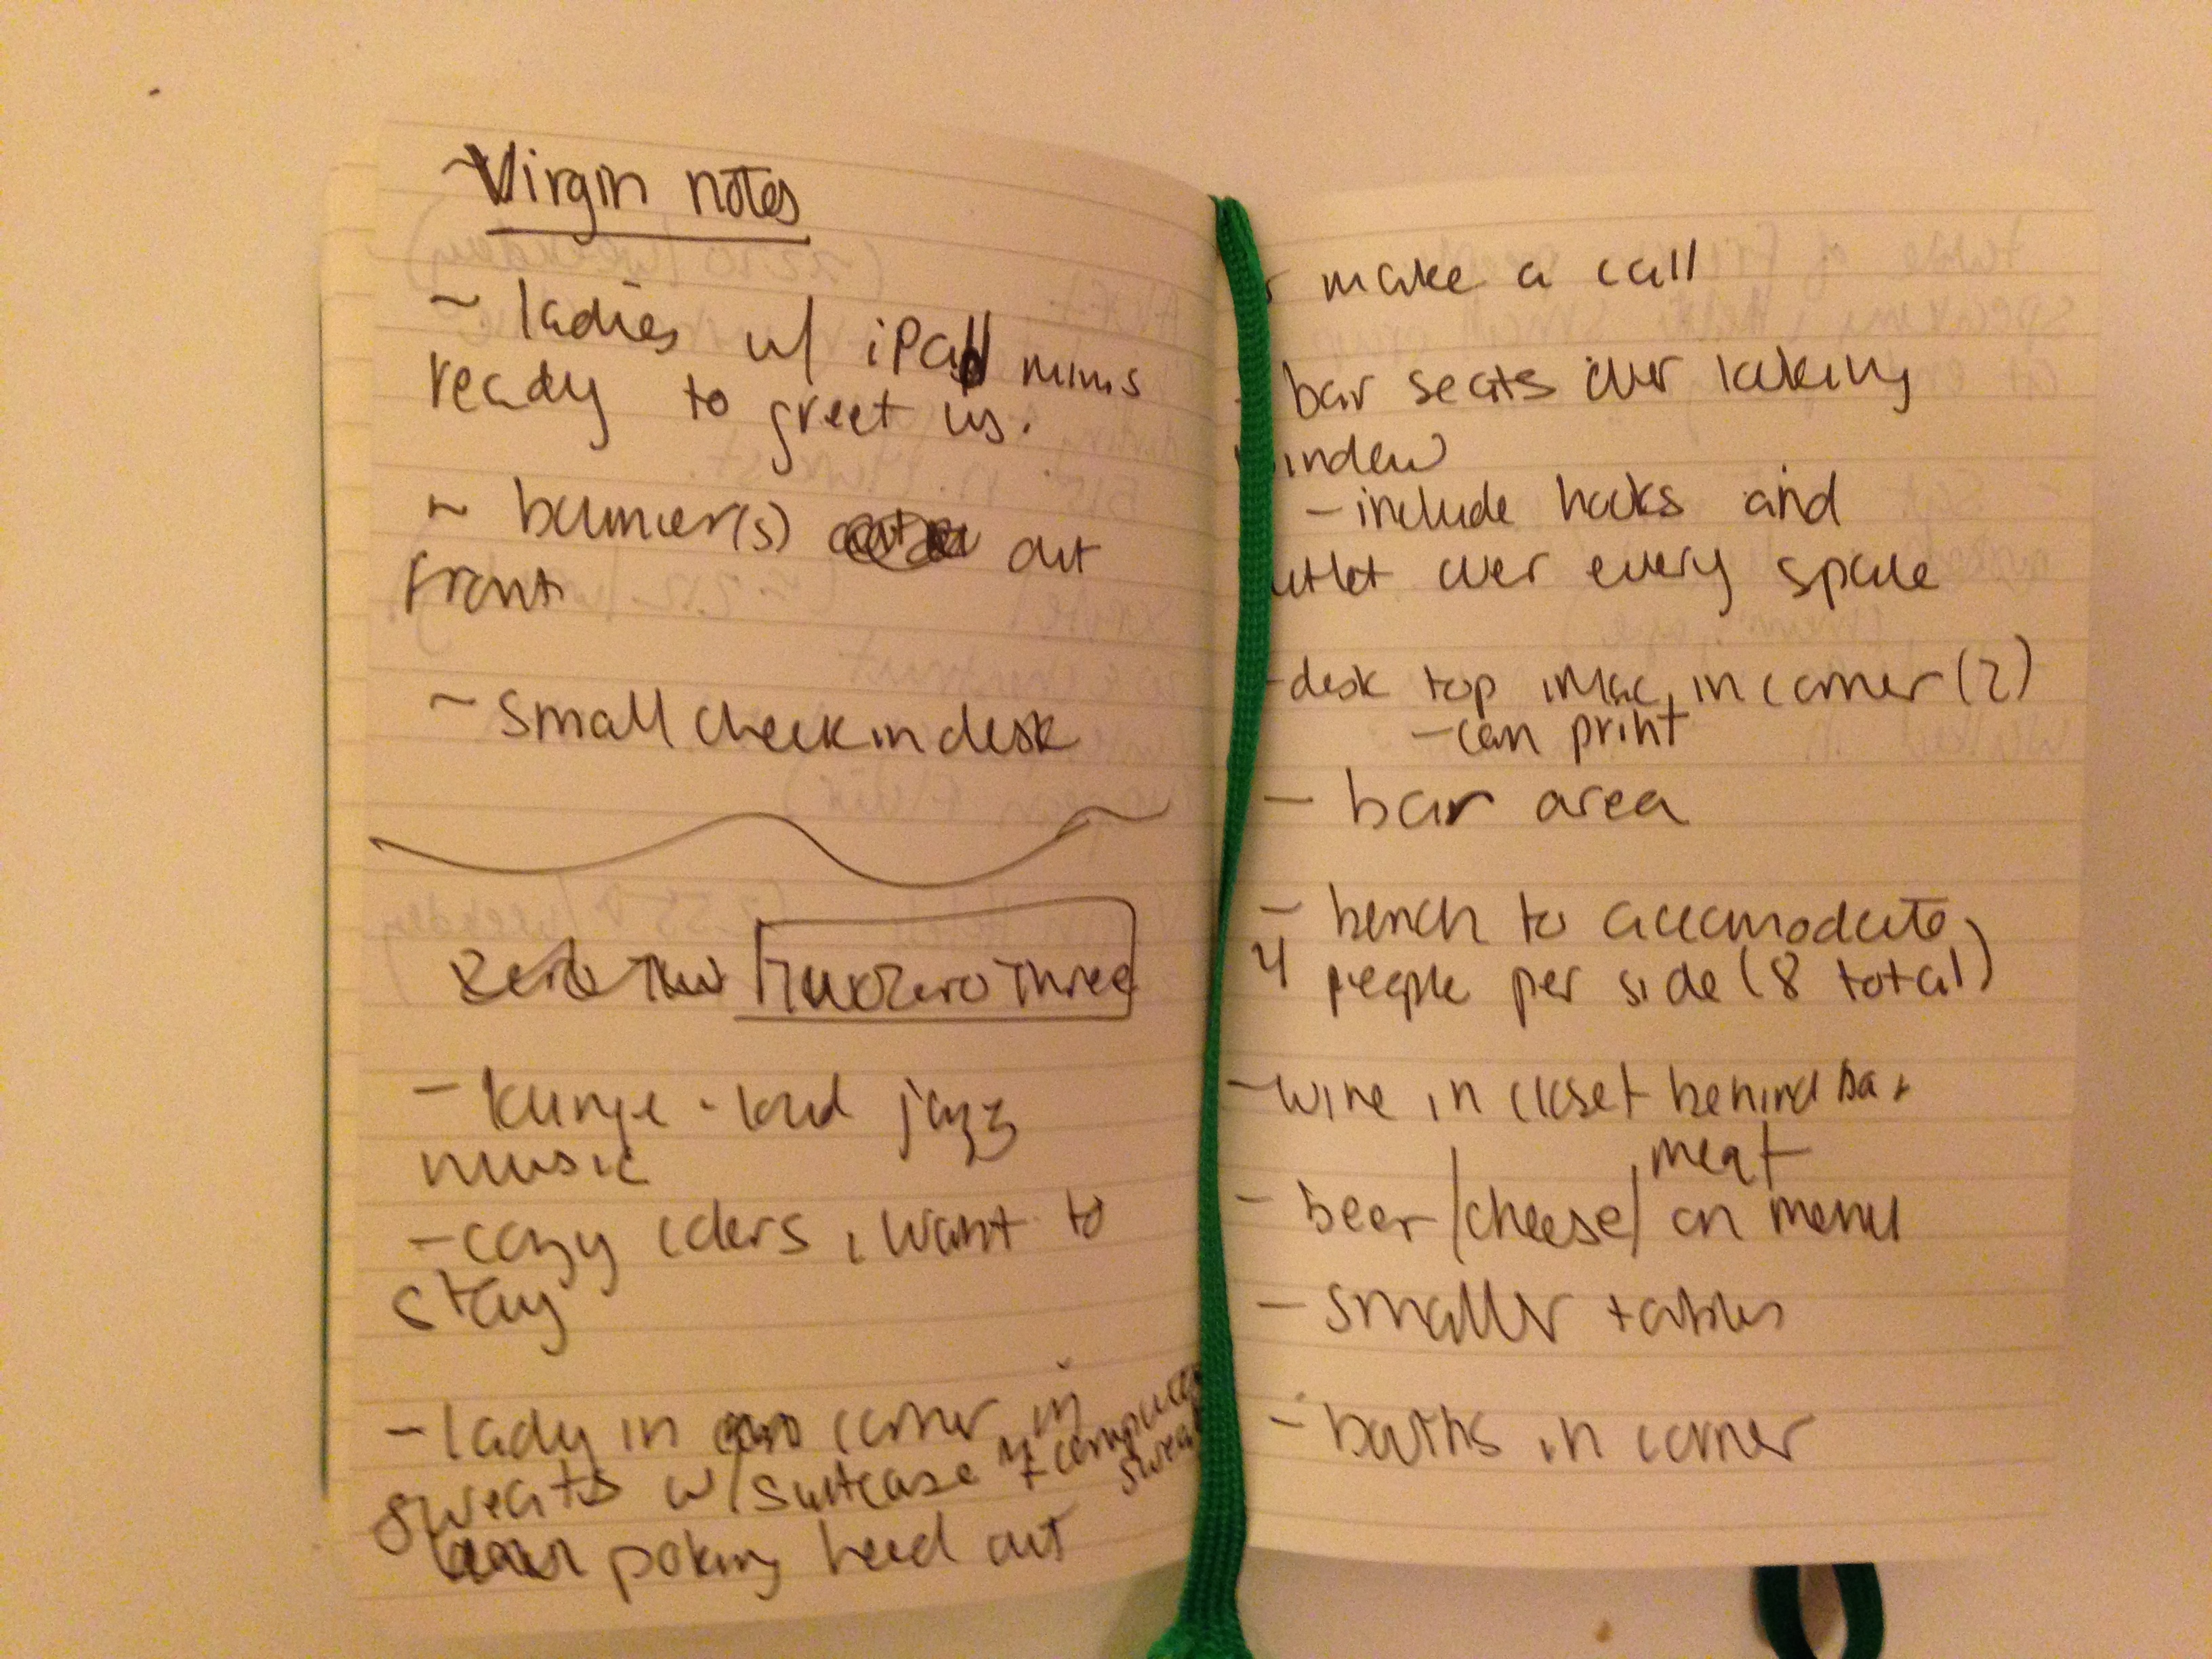 ~Virgin notes
~ ladies w/ iPad minis
ready to greet us.
~ bouncer(s) out
front
~ small check in desk
TwoZeroThree
- lounge - loud jazz
music
- cozy colors, want to
stay
- lady in corner in
sweats w/ suitcase + computer
sweats
poking head out
make a call
bar seats over looking
window
- include hooks and
outlet over every space
- desk top iMac, in corner (2)
- can print
- bar area
- bench to accomodate
4 people per side (8 total)
- wine in closet behind bar
, meat
- beer/cheese/ on menu
- smaller tables
- booths in corner